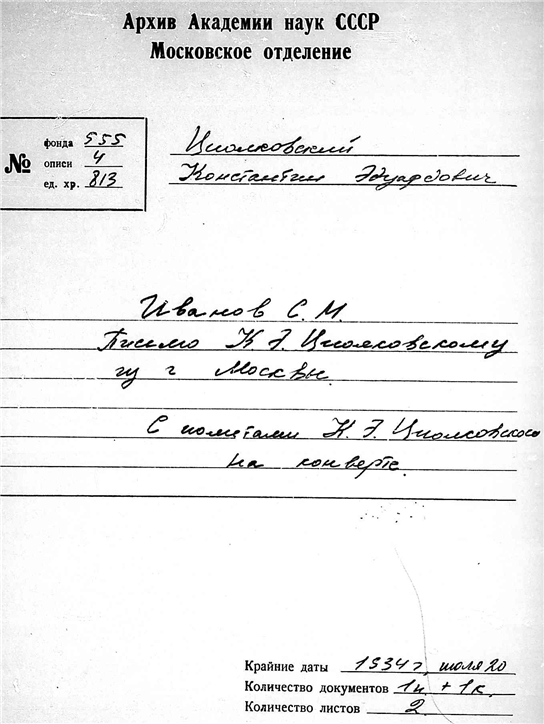 Архив Академии наук СССР
Московское отделение
№
фонда 555
описи 4
ед. хр. 813
Циолковский
Константин Эдуардович
Иванов С. М.
Письмо К. Э. Циолковскому
из г Москвы.
С пометами К. Э. Циолковского
на конверте.
Крайние даты 1934 г, июля 20
Количество документов 1п. + 1к.
Количество листов 2